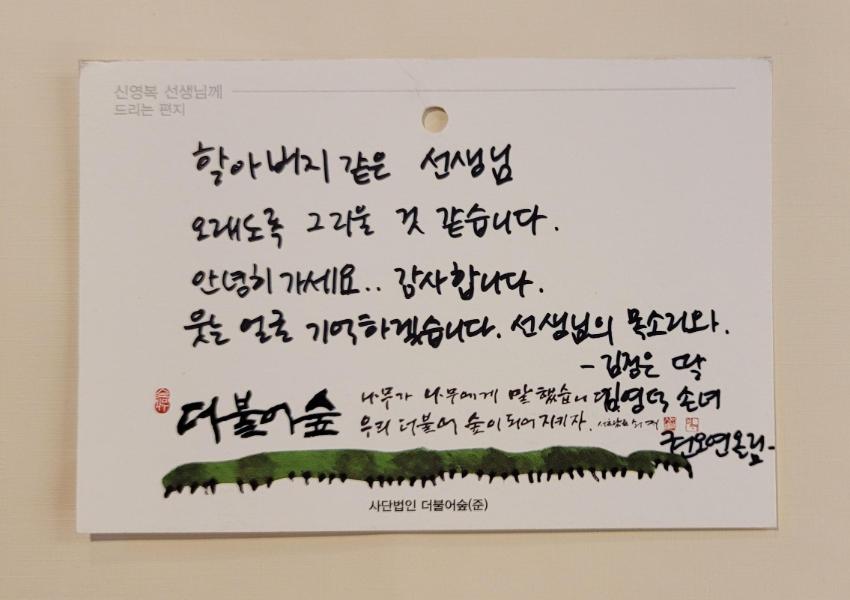 신영복 선생님께
드리는 편지
할아버지 같은 선생님
오래도록 그리울 것 같습니다.
안녕히 가세요.. 감사합니다.
웃는 얼굴 기억하겠습니다. 선생님의 목소리와.
- 김정은 딸
김영덕 손녀
전오연 올림 -
더불어숲
나무가 나무에게 말했습니다
우리 더불어 숲이 되어 지키자.
사단법인 더불어숲(준)